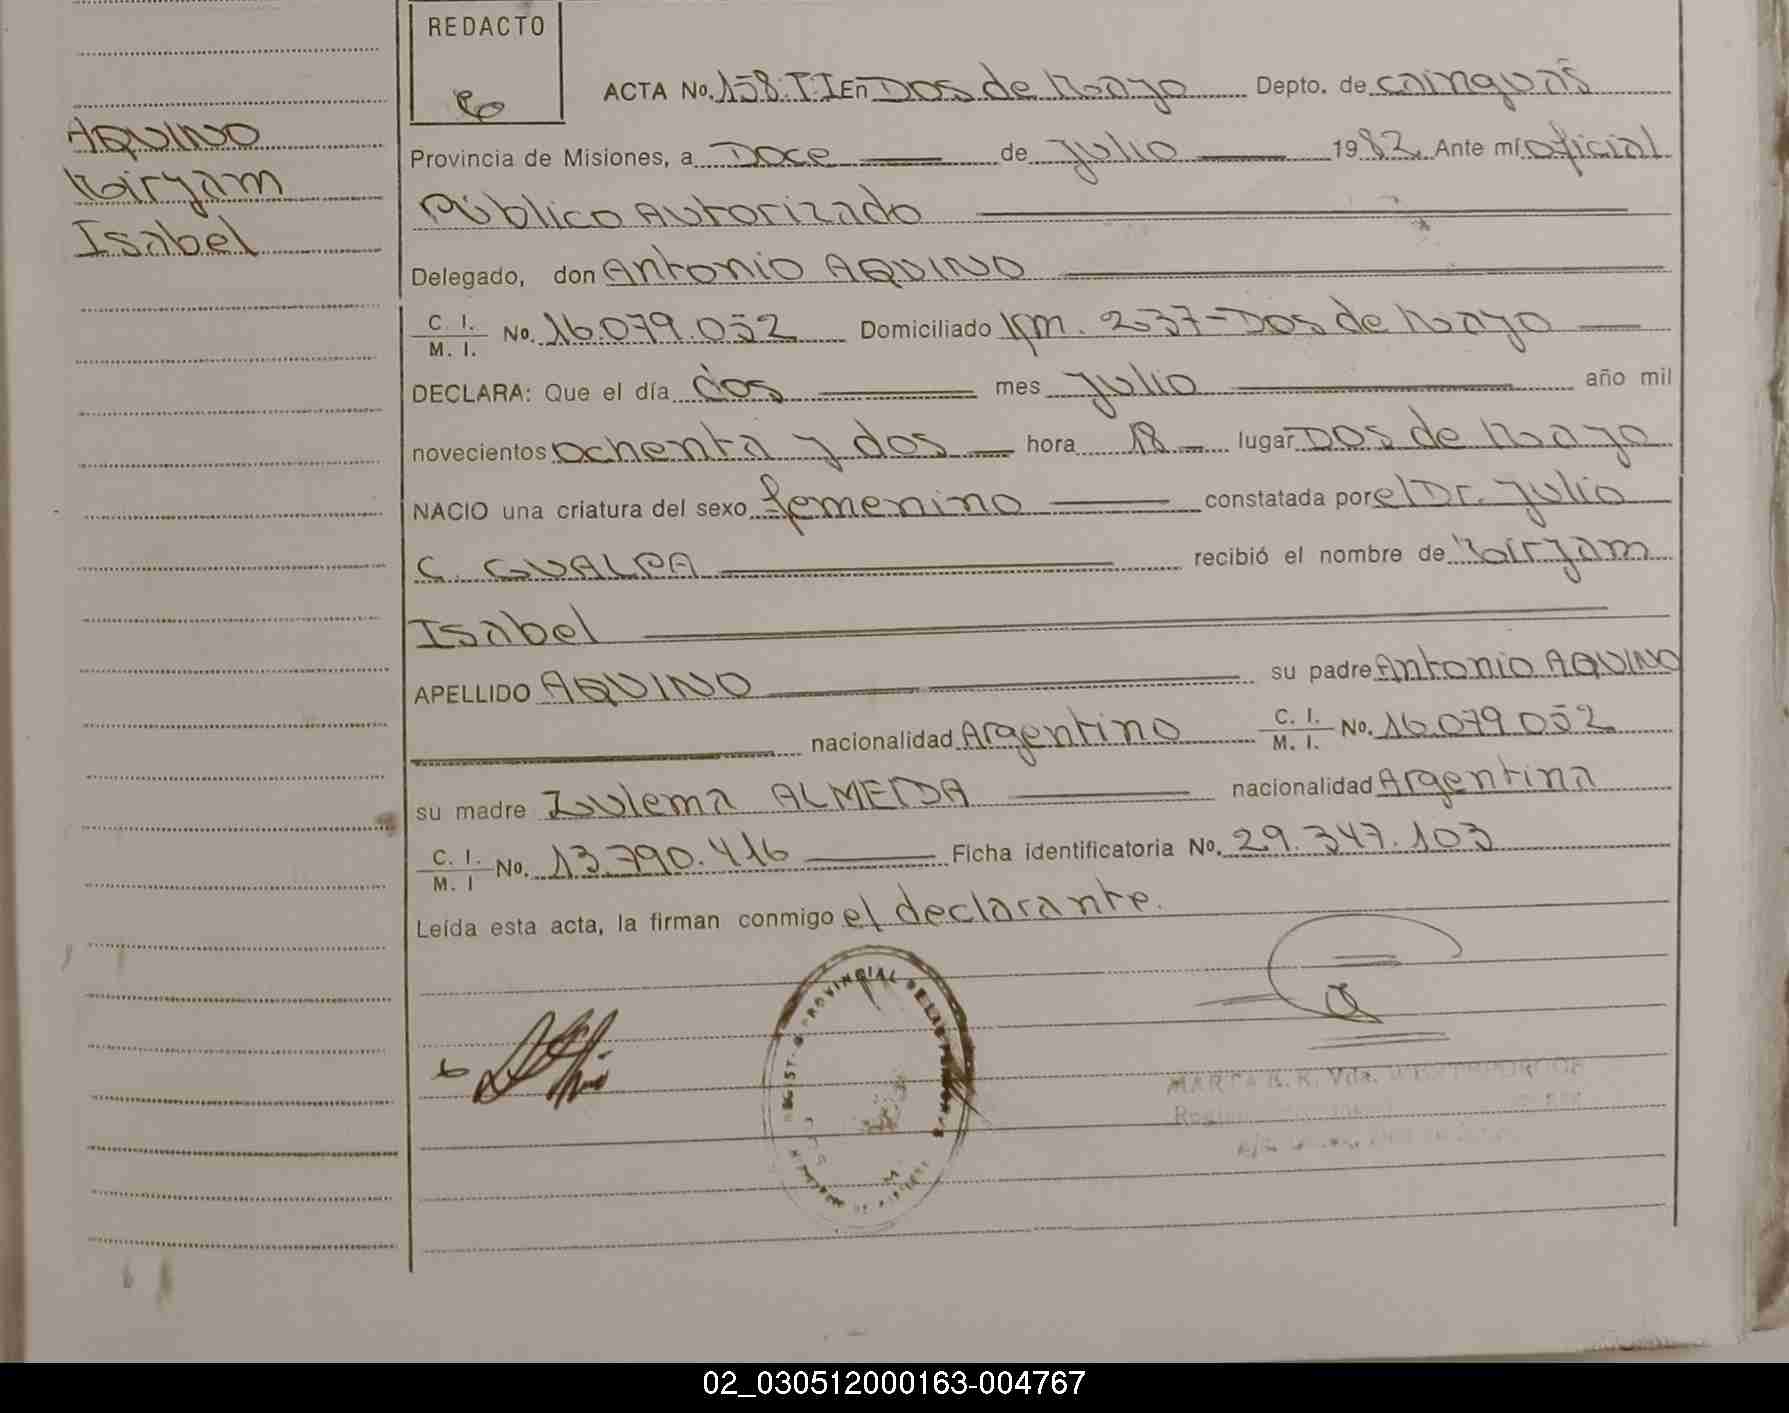 REDACTO
AQUINO
Miryam
Isabel
ACTA No. 158. T. I En Dos de Mayo Depto. de cainguás
Provincia de Misiones, a Doce de Julio 1982 Ante mí oficial
Público Autorizado
Delegado, don Antonio AQUINO
C. I. M. I. No. 16.079.052 Domiciliado Km. 237-Dos de Mayo
DECLARA: Que el día dos mes Julio año mil
novecientos ochenta y dos hora 18 lugar Dos de Mayo
NACIO una criatura del sexo femenino constatada por el Dr. Julio
C. GUALPA recibió el nombre de Miryam
Isabel
APELLIDO AQUINO su padre Antonio AQUINO
nacionalidad Argentino C. I. M. I. No. 16.079.052
su madre Zulema ALMEIDA nacionalidad Argentina
C. I. M. I No. 13.790.416 Ficha identificatoria No. 29.347.103
Leída esta acta, la firman conmigo el declarante.
PROVINCIAL DE LAS PERSONAS
MARTA R. R. Vda.
02_030512000163-004767